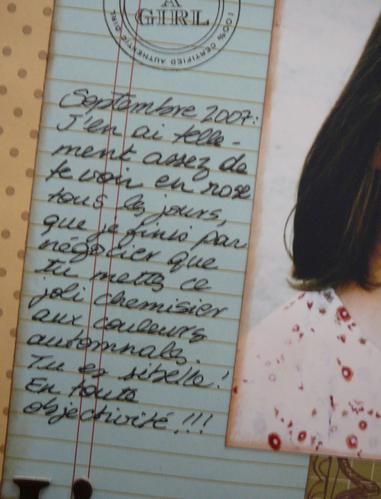 A
GIRL
100% CERTIFIED AUTHENTIC GIRL
Septembre 2007:
J'en ai telle-
ment assez de
te voir en rose
tous les jours,
que je finis par
négocier que
tu mettes ce
joli chemisier
aux couleurs
automnales.
Tu es si belle!
En toute
objectivité!!!